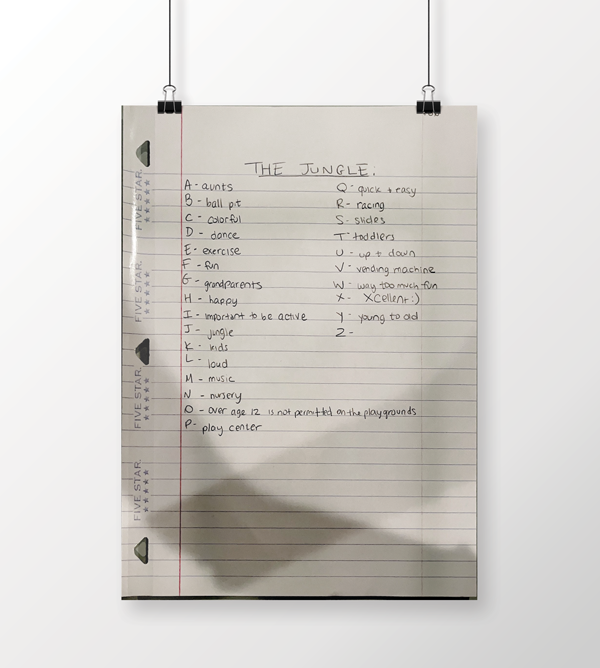 THE JUNGLE:
A - aunts
B - ball pit
C - colorful
D - dance
E - exercise
F - fun
G - grandparents
H - happy
I - important to be active
J - jungle
K - kids
L - loud
M - music
N - nursery
O - over age 12 is not permitted on the playgrounds
P - play center
Q - quick + easy
R - racing
S - slides
T - toddlers
U - up + down
V - vending machine
W - way too much fun
X - Xcellent :)
Y - young to old
Z -
FIVE STAR.
FIVE STAR.
FIVE STAR.
FIVE STAR.